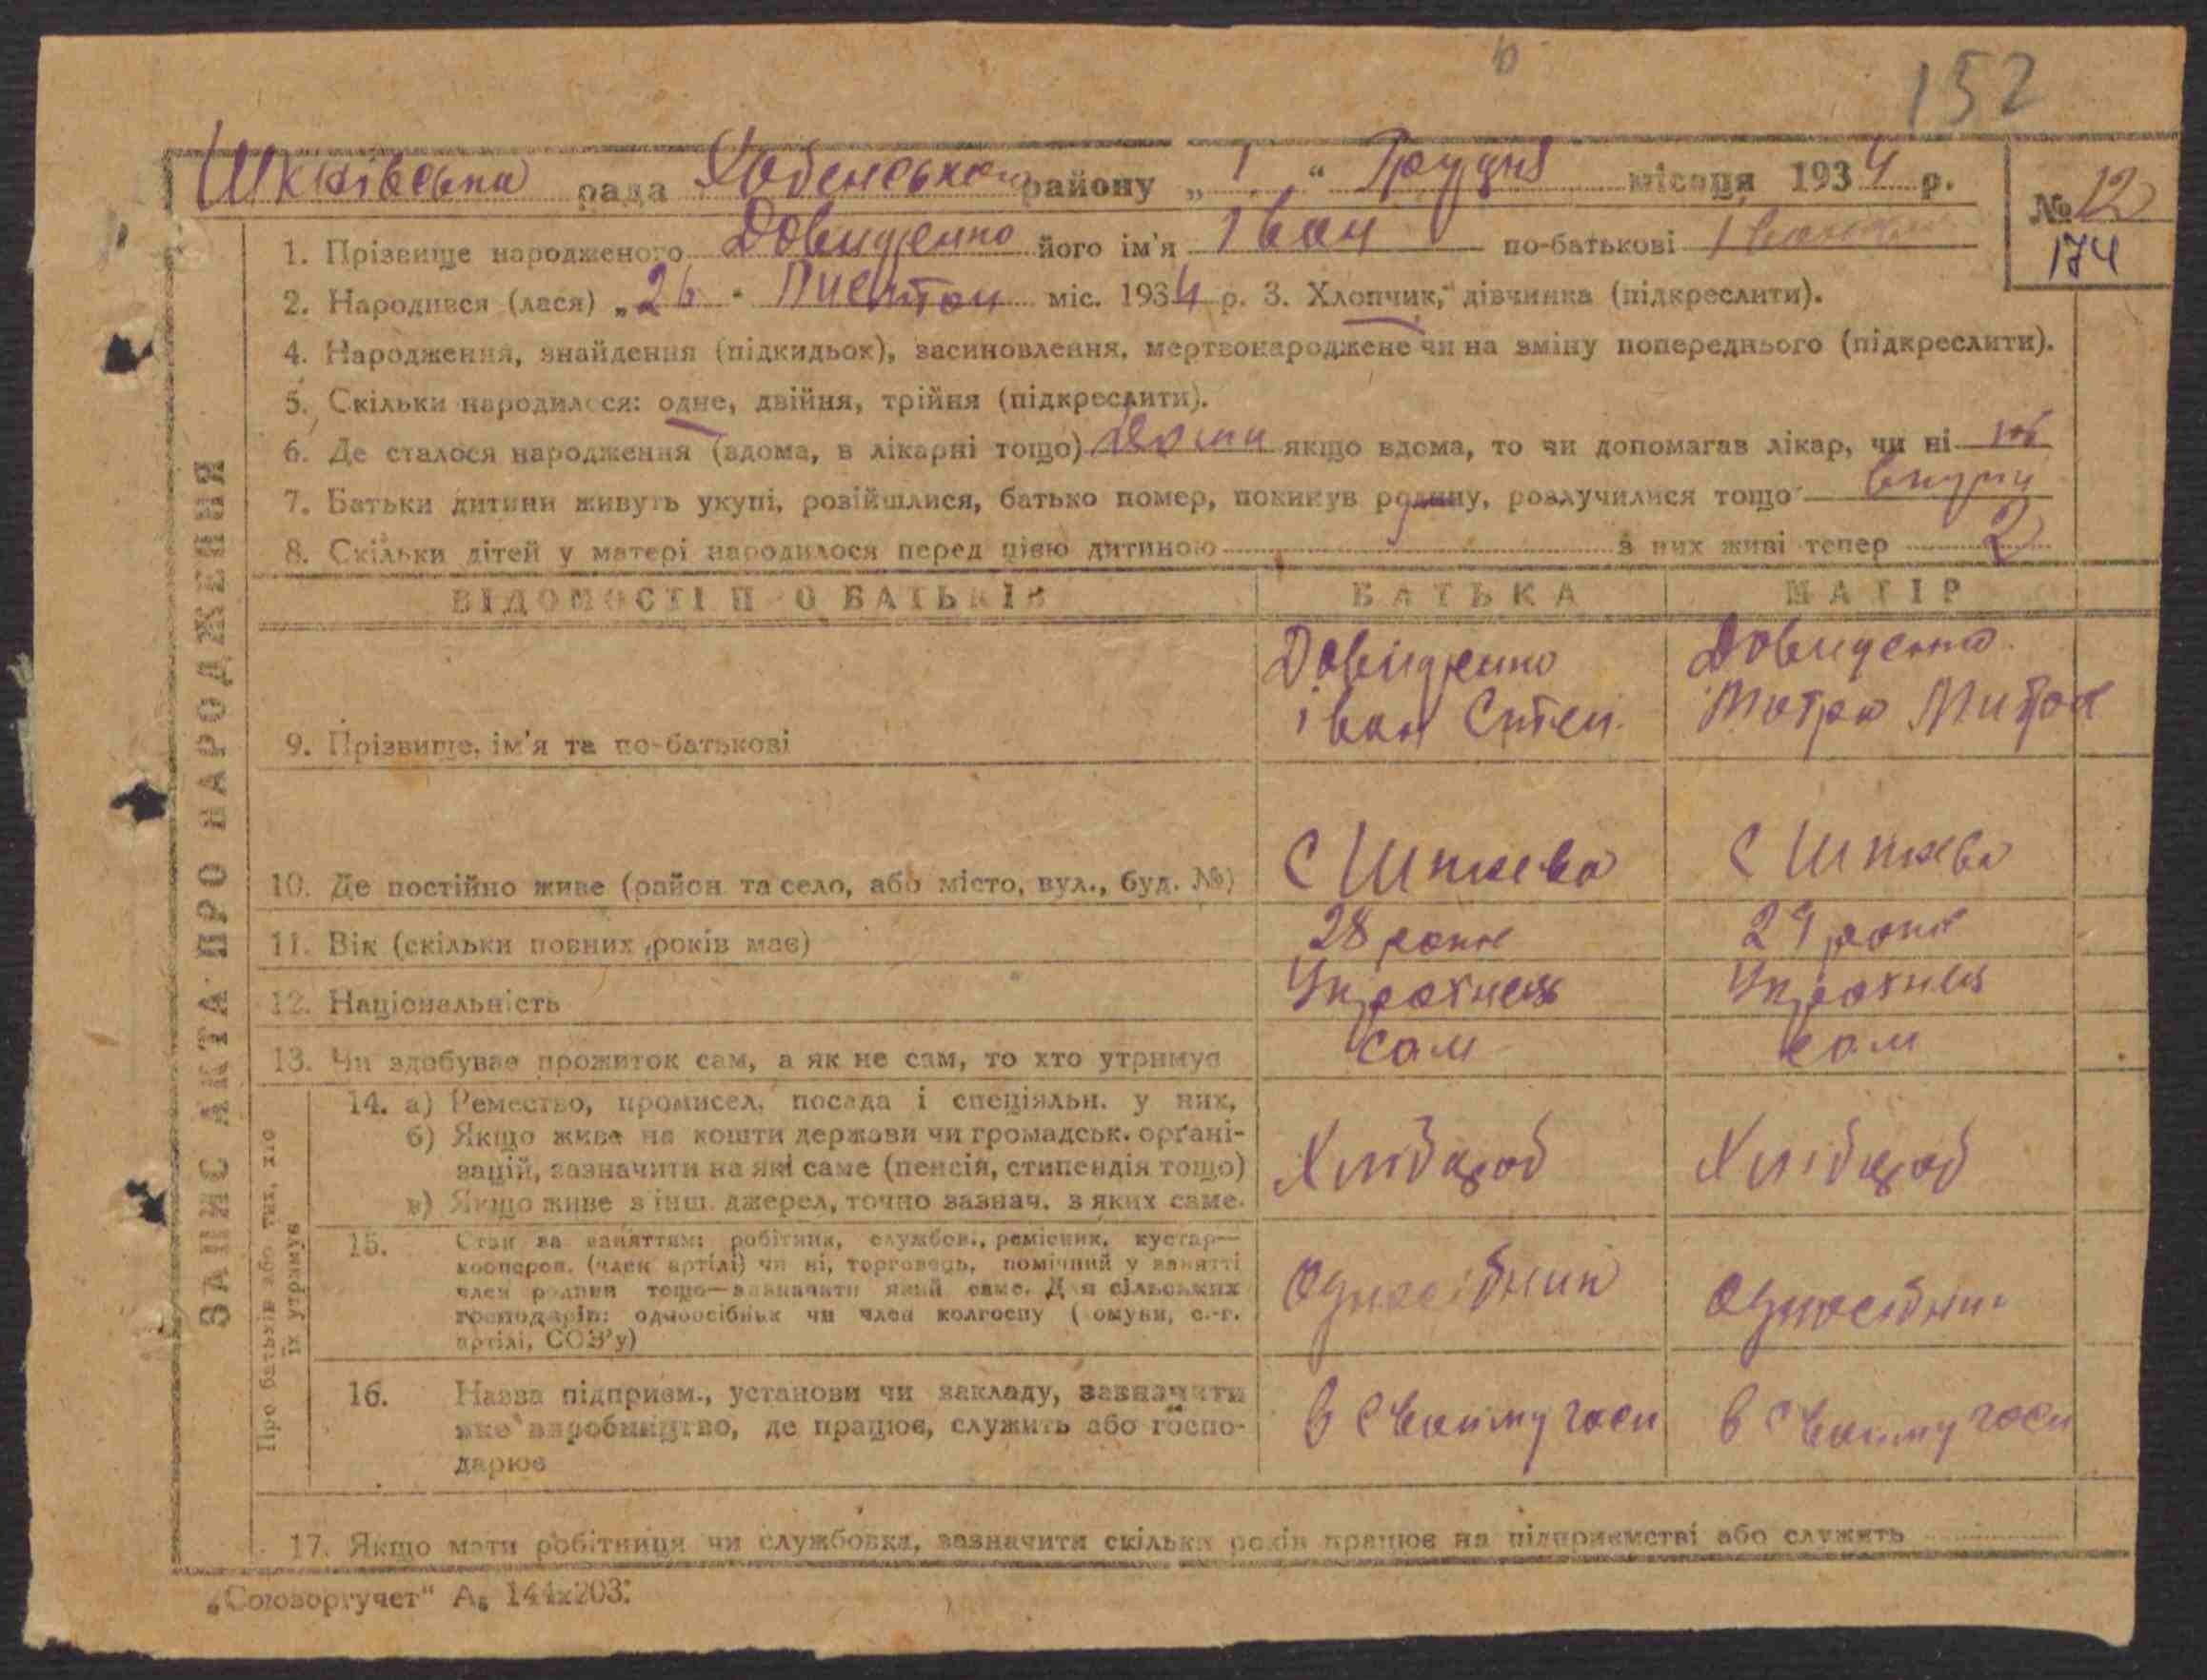 152
рада Хабенського району „ 1 “ Грудня місяця 1934 р.
№ 12
174
1. Прізвище народженого Довиденко його ім'я Іван по-батькові
2. Народився (лася) „ 26 " міс. 1934 р. 3. Хлопчик, дівчинка (підкреслити).
4. Народження, знайдення (підкидьок), засиновлення, мертвонароджене чи на зміну попереднього (підкреслити).
5. Скільки народилося: одне, двійня, трійня (підкреслити).
6. Де сталося народження (вдома, в лікарні тощо) дома якщо вдома, то чи допомагав лікар, чи ні ні
7. Батьки дитини живуть укупі, розійшлися, батько помер, покинув родину, розлучилися тощо вкупи
8. Скільки дітей у матері народилося перед цією дитиною з них живі тепер 2
ЗАПИС АКТА ПРО НАРОДЖЕННЯ
ВІДОМОСТІ ПРО БАТЬКІВ БАТЬКА МАТІР
9. Прізвище, ім'я та по-батькові
Довиденко
Іван Степ.
Довиденко
Мотря Митроф
10. Де постійно живе (район та село, або місто, вул., буд. №) с с
11. Вік (скільки повних років має) 28 29
12. Національність Украінец Украінец
13. Чи здобуває прожиток сам, а як не сам, то хто утримує сам сам
Про батьків або тих, хто
їх утримує
14. а) Ремество, промисел, посада і спеціяльн. у них,
б) Якщо живе на кошти держави чи громадськ. орґані-
зацій, зазначити на які саме (пенсія, стипендія тощо)
в) Якщо живе з інш. джерел, точно зазнач. з яких саме.
Хлібороб Хлібороб
15. Стан за заняттям: робітник, службов., ремісник, кустар—
кооперов. (член артілі) чи ні, торговець, помічний у занятті
член родини тощо—зазначати який саме. Для сільських
господарів: одноосібник чи член колгоспу (комуни, с.-г.
артілі, СОЗ'у)
Односібник Односібник
16. Назва підприєм., установи чи закладу, зазначити
яке виробництво, де працює, служить або госпо-
дарює
в своиму госп в своиму госп
17. Якщо мати робітниця чи службовка, зазначити скільки років працює на підприємстві або служить
„Союзоргучет“ А₅ 144х203.